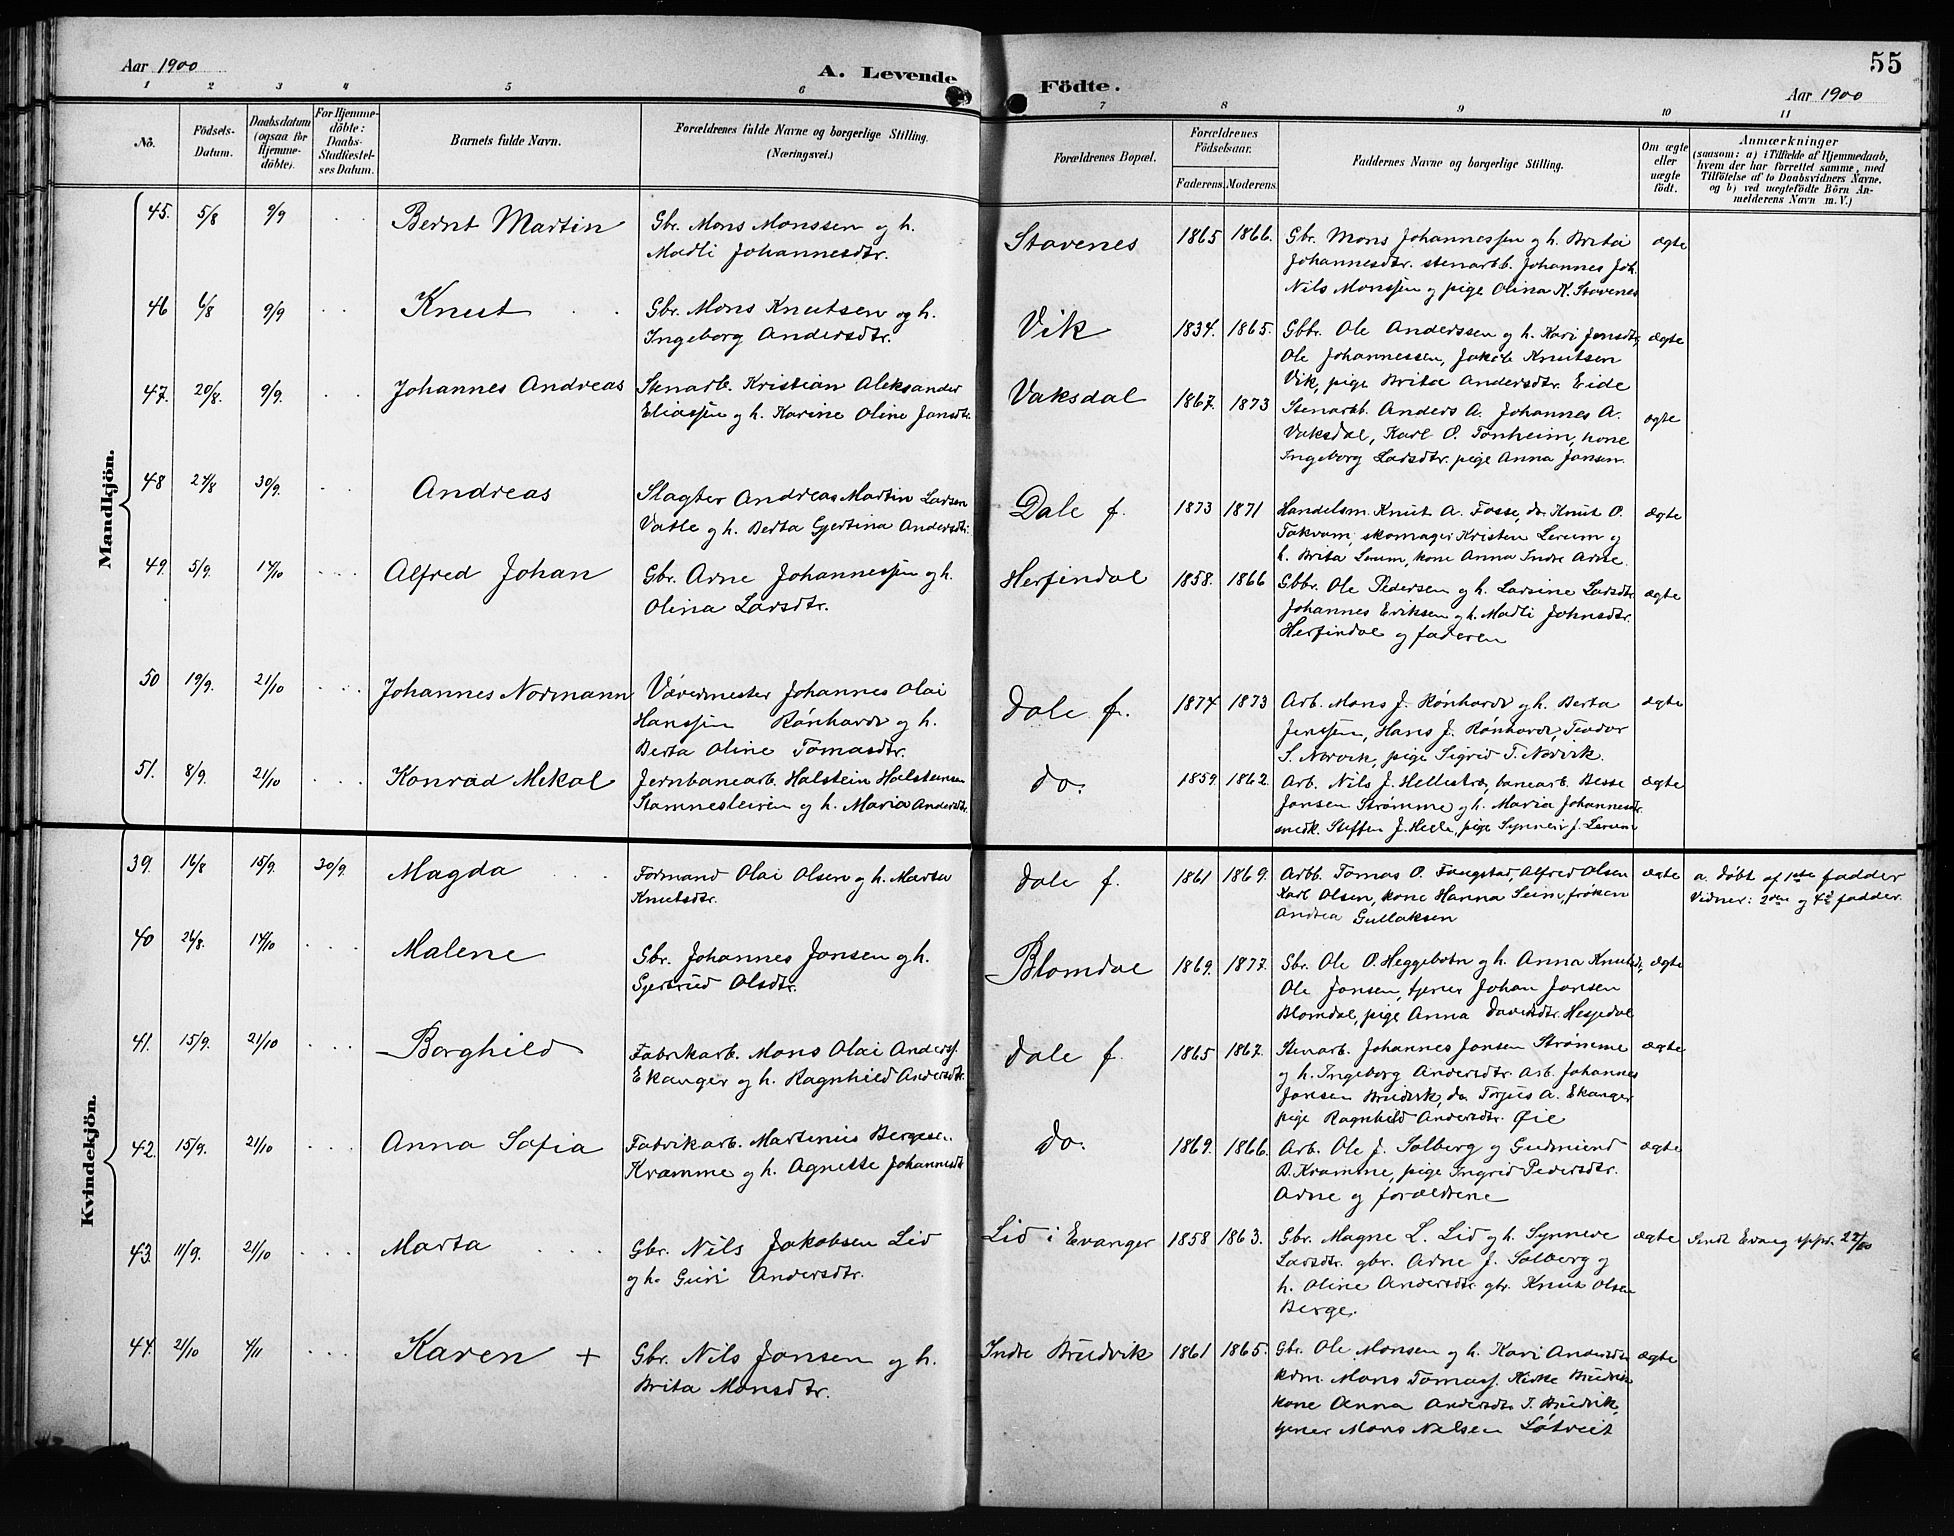 55
Aar 1900
A. Levende
Födte.
Aar 1900
1 2 3 4 5 6 7 8 9 10 11
No.
Födsels-
Datum.
Daabsdatum
(ogsaa for
Hjemme-
döbte).
For Hjemme-
döbte:
Daabs-
Stadfæstel-
ses Datum.
Barnets fulde Navn.
Forældrenes fulde Navne og borgerlige Stilling.
(Næringsvei.)
Forældrenes Bopæl.
Forældrenes
Födselsaar.
Faderens. Moderens.
Faddernes Navne og borgerlige Stilling.
Om ægte
eller
uægte
födt.
Anmærkninger
(saasom: a) i Tilfælde af Hjemmedaab,
hvem der har forrettet samme, med
Tilföielse af to Daabsvidners Navne,
og b) ved uegtefödte Börn An-
melderens Navn m. V.)
Mandkjön.
45. 5/8 9/9 Bernt Martin
Gbr. Mons Monssen og h.
Madli Johannesdtr.
Stavenes 1865 1866.
Gbr. Mons Johannessen og h. Brita
Johannesdtr. stenarbb. Johannes Joh.
Nils Monssen og pige Olina K. Stavenes
ægte
46 6/8 9/9 Knut
Gbr. Mons Knutsen og h.
Ingeborg Andersdtr.
Vik 1834. 1865.
Gbbr. Ole Anderssen og h. Kari Jonsdtr,
Ole Johannessen, Jakob Knutsen
Vik, pige Brita Andersdtr. Eide
ægte
47. 20/8. 9/9. Johannes Andreas
Stenarb. Kristian Aleksander
Eliassen og h. Karine Oline Jansdtr.
Vaksdal 1867. 1873
Stenarbb. Anders A. Johannes A.
Vaksdal, Karl O. Tonheim, kone
Ingeborg Larsdtr. pige Anna Jansen.
ægte
48 27/8 30/9. Andreas
Slagter Andreas Martin Larsen
Vatle og h. Berta Gjertina Andersdtr.
Dale f. 1873 1871
Handelsm. Knut A. Fosse, do. Knut O.
Takvam, skomager Kristen Lerum og
h. Brita Lerum, kone Anna Indre Arne.
ægte
49. 5/9. 14/10 Alfred Johan
Gbr. Arne Johannessen og h.
Olina Larsdtr.
Herfindal 1858. 1866
Gbbr. Ole Pedersen og h. Larsine Larsdtr.
Johannes Eriksen og h. Madli Johnsdtr.
Herfindal og faderen
ægte
50 19/9. 21/10 Johannes Normann
Vævermester Johannes Olai
Hanssen Rönhardt og h.
Berta Oline Tomasdtr.
Dale f. 1874 1873
Arb. Mons J. Rönhardt og h. Berta
Jenssen, Hans J. Rönhardt, Teodor
S. Norvik, pige Sigrid T. Norvik.
ægte
51. 8/9. 21/10 Konrad Mikal
Jernbanearb. Halstein Halsteinsen
Stamnesleiren og h. Maria Andersdtr.
do. 1859. 1862.
Arb. Nils J. Hellestræ, banearb. Besse
Jansen Strømme og h. Maria Johannesdtr.
smedk. Steffen J. Helle, pige Synneve J. Lerum
ægte
Kvindekjön.
39. 16/8 15/9. 30/9. Magda
Formand Olai Olsen og h. Marta
Knutsdtr.
Dale f. 1861 1869.
Arbb. Tomas O. Faugstad, Alfred Olsen
Karl Olsen, kone Hanna Seim, frøken
Andrea Gullaksen
ægte
a. döbt af 1ste fadder
Vidner: 2den og 4de fadder.
40 26/8. 14/10 Malene
Gbr. Johannes Jansen og h.
Gjertrud Olsdtr.
Blomdal 1869. 1877.
Gbr. Ole O. Heggebotn og h. Anna Knutsdtr,
Ole Jansen, tjener Johan Jansen
Blomdal, pige Anna Davidsdtr. Hesjedal
ægte
41. 15/9. 21/10 Borghild
Fabrikarb. Mons Olai Anderss.
Ekanger og h. Ragnhild Andersdtr.
Dale f. 1865 1867.
Stenarb. Johannes Jansen Strømme
og h. Ingeborg Andersdtr. Arb. Johannes
Jansen Brudvik, do. Torjus A. Ekanger
pige Ragnhild Andersdtr. Øie
ægte
42. 15/9. 21/10 Anna Sofia
Fabrikarb. Martinus Bergesen
Kramme og h. Agnette Johannesdtr.
do. 1869. 1866.
Arb. Ole J. Solberg og Gudmund
B. Kramme, pige Ingrid Pedersdtr.
Arne og forældrene
ægte
43. 11/9. 21/10 Marta
Gbr. Nils Jakobsen Lid
og h. Guri Andersdtr.
Lid i Evanger 1858 1863.
Gbr. Magne L. Lid og h. Synneve
Larsdtr. gbr. Arne J. Solberg og
h. Oline Andersdtr. gbr. Knut Olsen
Berge.
ægte
Sendt Evang
44. 2/10 4/11 Karen +
Gbr. Nils Jansen og h.
Brita Monsdtr.
Indre Brudvik 1861 1865.
Gbr. Ole Monsen og h. Kari Andersdtr.
Mons Tomass.
kone Anna Andersdtr. I. Brudvik,
tjener Mons Nilsen Løtveit
ægte